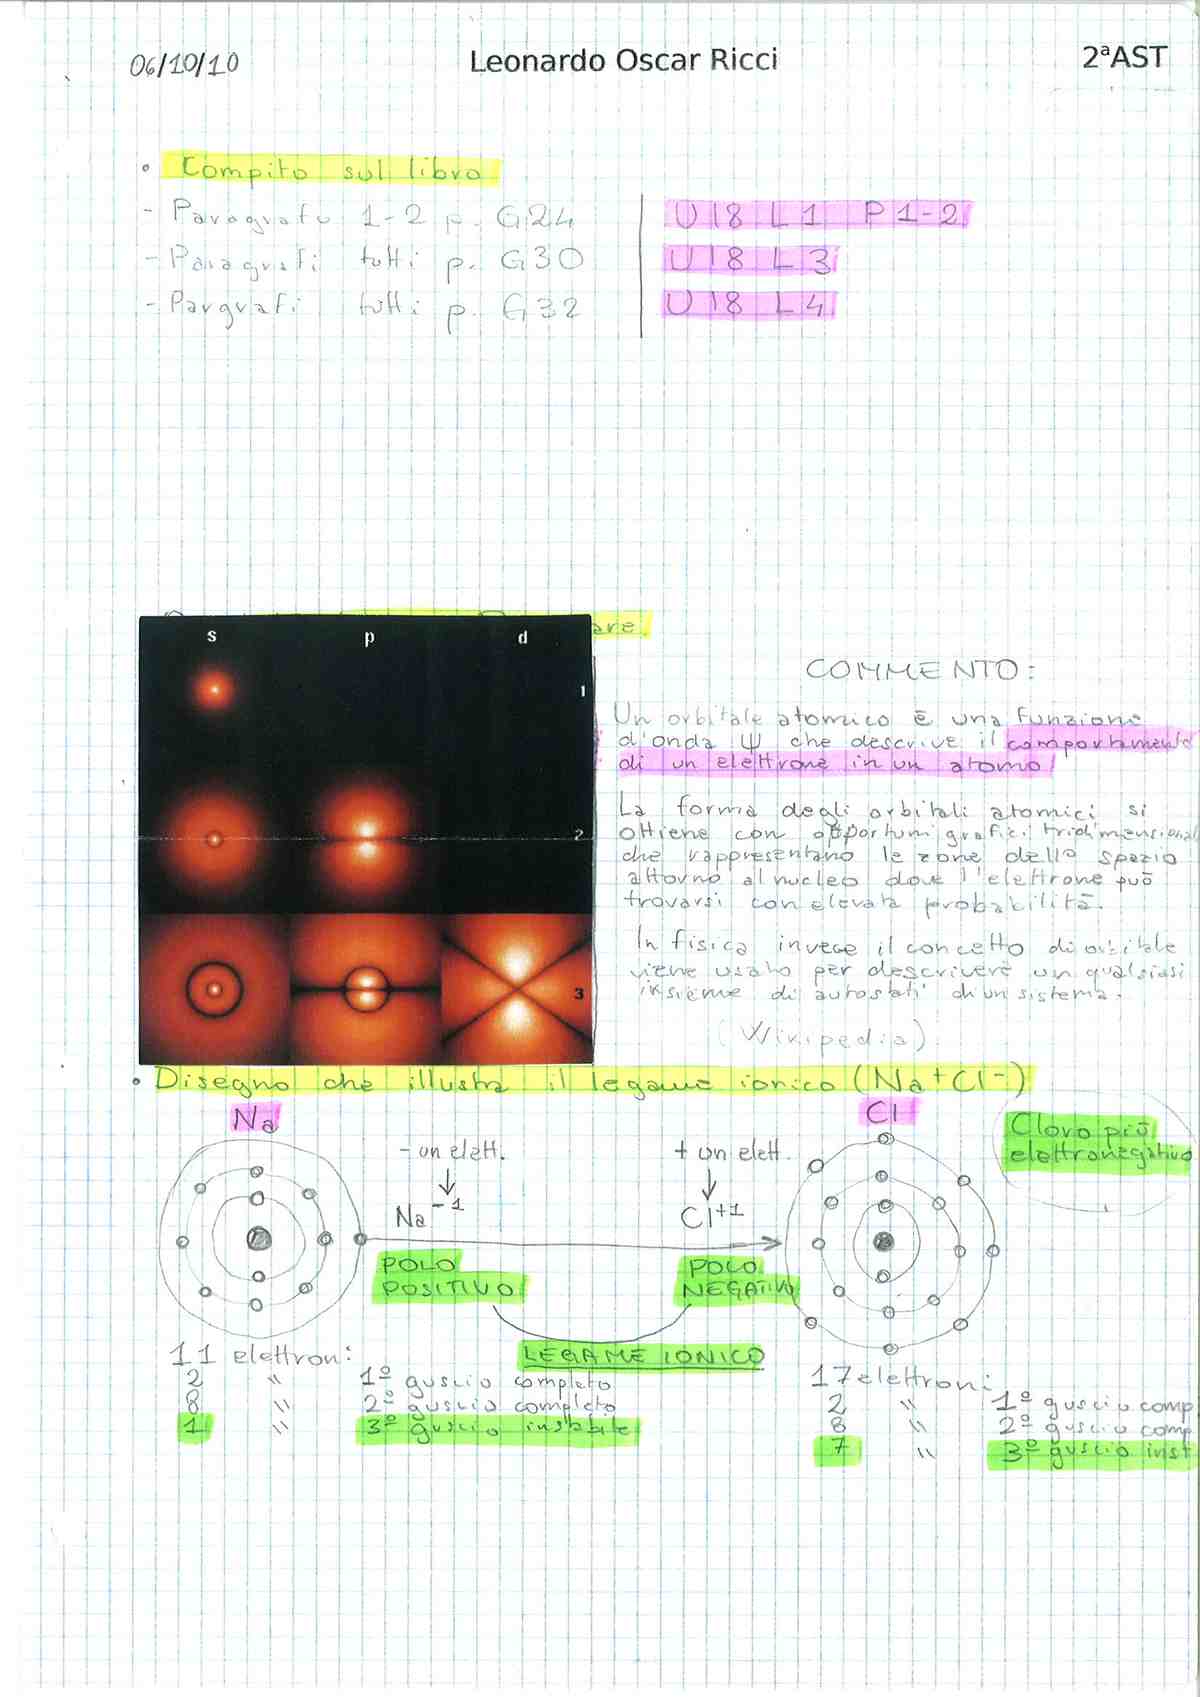 06/10/10 Leonardo Oscar Ricci 2ªAST
• Compito sul libro
- Paragrafo 1-2 p. G24 U18 L1 P1-2
- Paragrafi tutti p. G30 U18 L3
- Pargrafi tutti p. G32 U18 L4
are.
s p d
1
2
3
COMMENTO:
Un orbitale atomico è una funzione
d'onda ψ che descrive il comportamento
di un elettrone in un atomo
La forma degli orbitali atomici si
ottiene con opportuni grafici tridimensionali
che rappresentano le zone dello spazio
attorno al nucleo dove l'elettrone può
trovarsi con elevata probabilità.
In fisica invece il concetto di orbitale
viene usato per descrivere un qualsiasi
insieme di autostati di un sistema.
(Wikipedia)
• Disegno che illustra il legame ionico (Na+Cl-)
Na Cl
Cloro più
elettronegativo
- un elett. + un elett.
Na-1 Cl+1
POLO
POSITIVO
POLO
NEGATIVO
LEGAME IONICO
11 elettroni:
2 " 1º guscio completo
8 " 2º guscio completo
1 " 3º guscio instabile
17 elettroni:
2 " 1º guscio comp
8 " 2º guscio comp
7 " 3º guscio inst